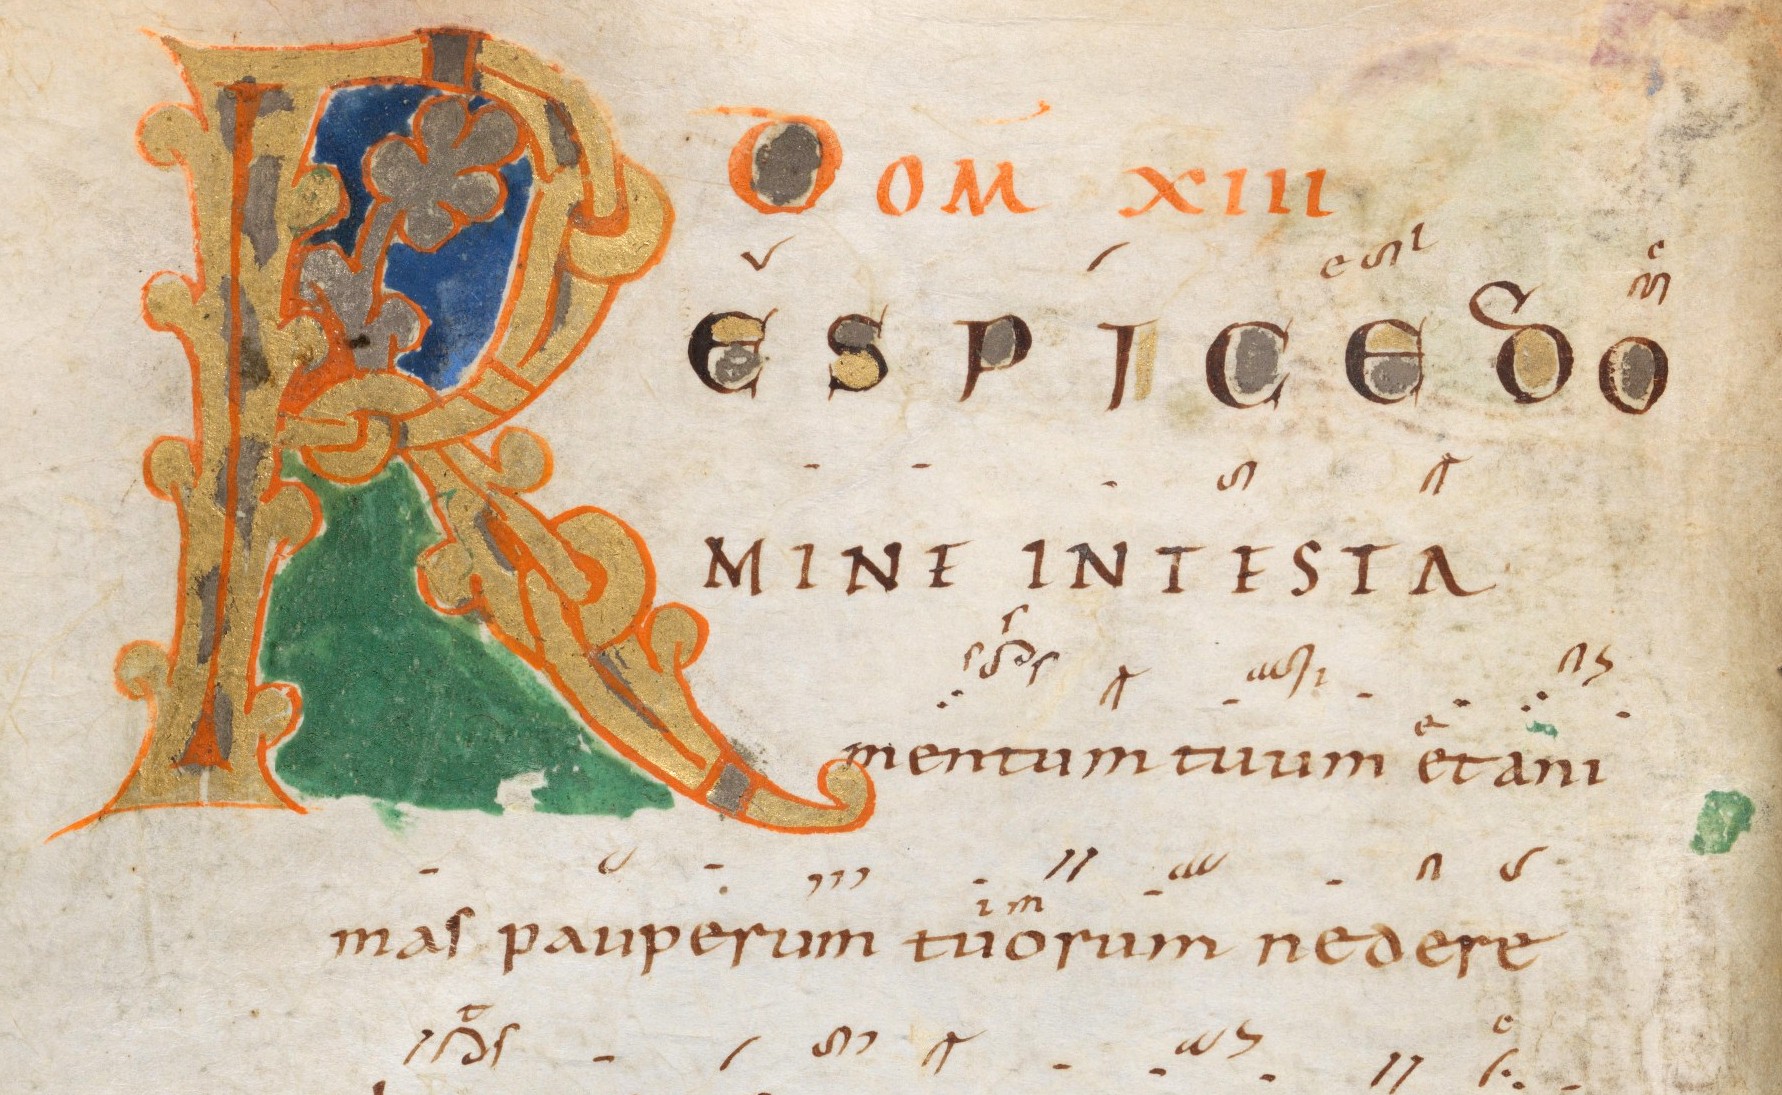 Dom XIII
RESPICE DO
MINE IN TESTA
mentum tuum et ani
mas pauperum tuorum ne dere